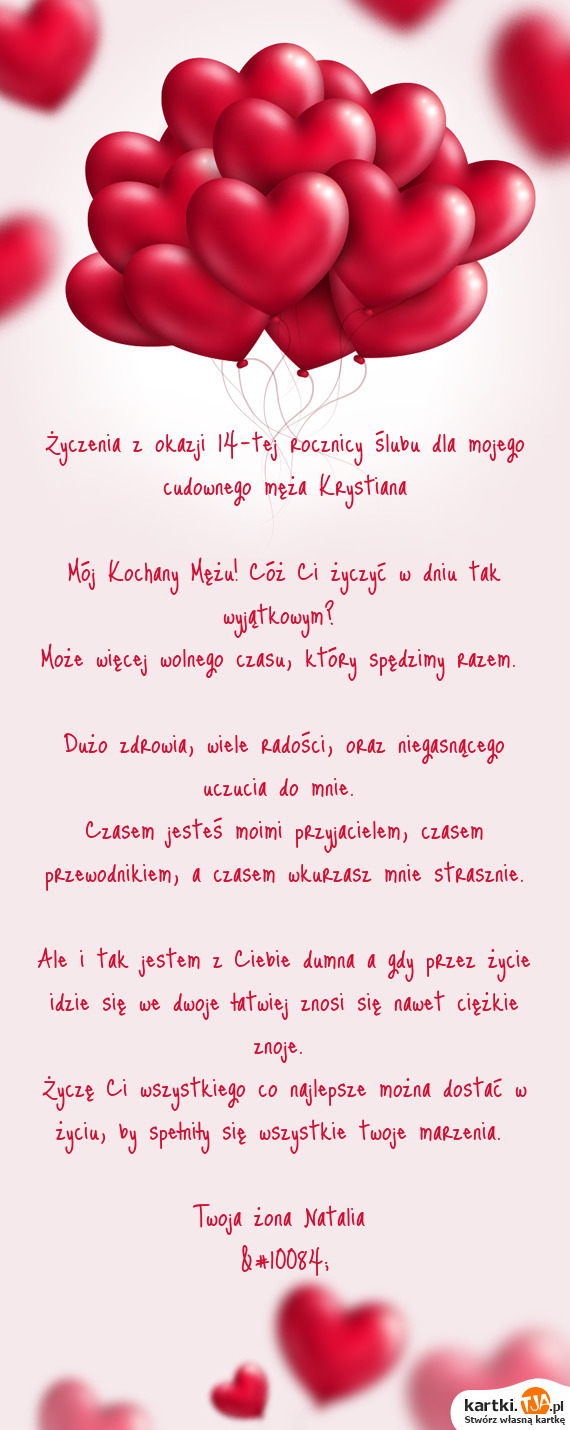 Życzenia z okazji 14-tej rocznicy ślubu dla mojego
cudownego męża Krystiana
Mój Kochany Mężu! Cóż Ci życzyć w dniu tak
wyjątkowym?
Może więcej wolnego czasu, który spędzimy razem.
Dużo zdrowia, wiele radości, oraz niegasnącego
uczucia do mnie.
Czasem jesteś moimi przyjacielem, czasem
przewodnikiem, a czasem wkurzasz mnie strasznie.
Ale i tak jestem z Ciebie dumna a gdy przez życie
idzie się we dwoje łatwiej znosi się nawet ciężkie
znoje.
Życzę Ci wszystkiego co najlepsze można dostać w
życiu, by spełniły się wszystkie twoje marzenia.
Twoja żona Natalia
&#10084;
kartki.TJA.pl
Stwórz własną kartkę